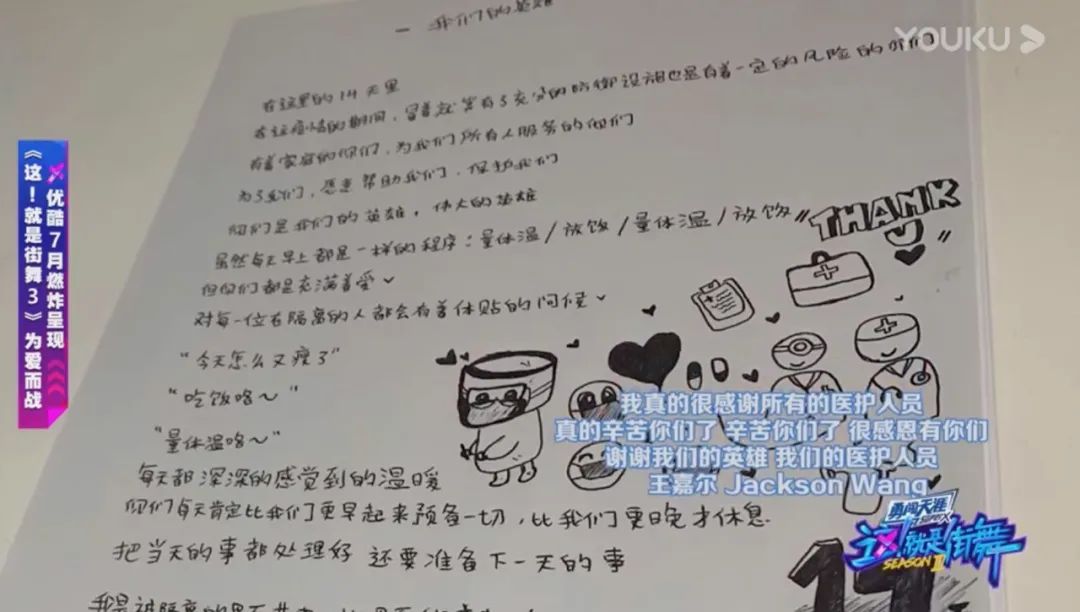 YOUKU
一 我们的英雄
在这里的14天里
在这疫情的期间，冒着就算有了充分的防御设施也是有着一定的风险的你们
有着家庭的你们，为我们所有人服务的你们
为了我们，愿意帮助我们，保护我们
你们是我们的英雄，伟大的英雄
虽然每天早上都是一样的程序：量体温/放饭/量体温/放饭
但你们都是充满着爱
对每一位在隔离的人都会有着体贴的问候
“今天怎么又瘦了”
“吃饭咯~”
“量体温咯~”
每天都深深的感觉到的温暖
你们每天肯定比我们更早起来预备一切，比我们更晚才休息
把当天的事都处理好 还要准备下一天的事
我是被隔离的
"THANK
U"
14
优酷7月燃炸呈现
《这！就是街舞3》为爱而战
我真的很感谢所有的医护人员
真的辛苦你们了 辛苦你们了 很感恩有你们
谢谢我们的英雄 我们的医护人员
王嘉尔 Jackson Wang
勇闯天涯
这！就是街舞
SEASON III